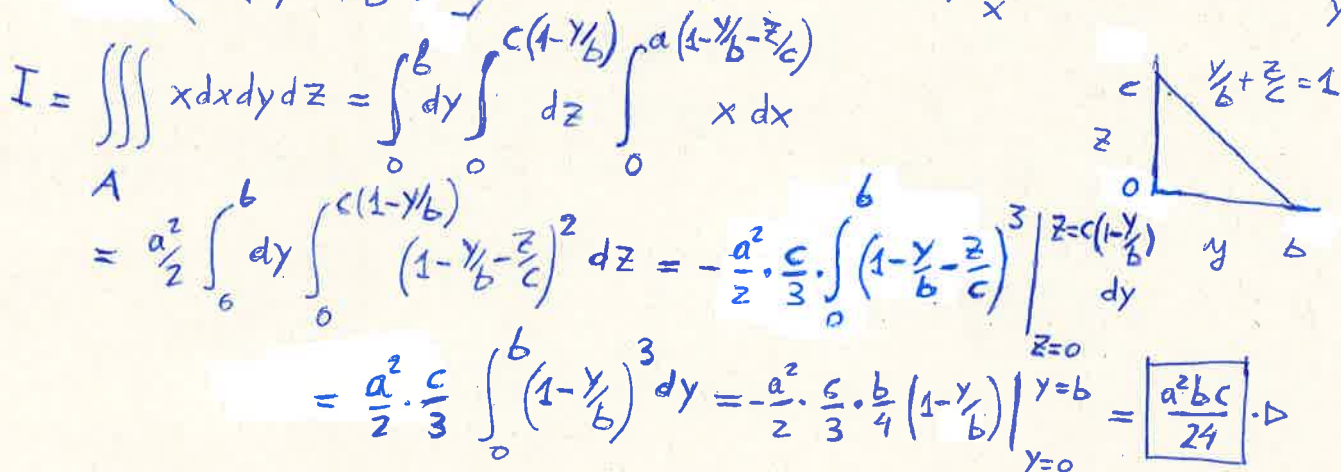 x y
I = ∭_A x dx dy dz = ∫_0^b dy ∫_0^{c(1-y/b)} dz ∫_0^{a(1-y/b-z/c)} x dx
c y/b + z/c = 1
z
0
= a²/2 ∫_0^b dy ∫_0^{c(1-y/b)} (1-y/b-z/c)² dz = -a²/2 · c/3 · ∫_0^b (1-y/b-z/c)³ |_{z=0}^{z=c(1-y/b)} dy
y b
= a²/2 · c/3 ∫_0^b (1-y/b)³ dy = -a²/2 · c/3 · b/4 (1-y/b) |_{y=0}^{y=b} = a²bc/24 · ▷